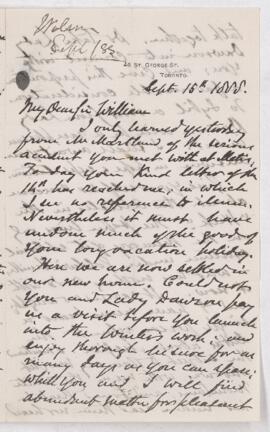 Wilson
Sept /88
28 ST. GEORGE ST.
TORONTO.
Sept. 15th 1888.
My Dear Sir William
I only learned yesterday
from Mr Marsland of the serious
accident you met with at Metis.
To day your kind letter of the
14th has reached me, in which
I see no reference to illness.
Nevertheless it must have
undone much of the good of
your long vacation holiday.
Here we are now settled in
our new home. Could not
you and Lady Dawson pay
us a visit before you launch
into the Winter's work; and
enjoy thorough leisure for as
many days as you can spare;
while you and I will find
abundant matter for pleasant